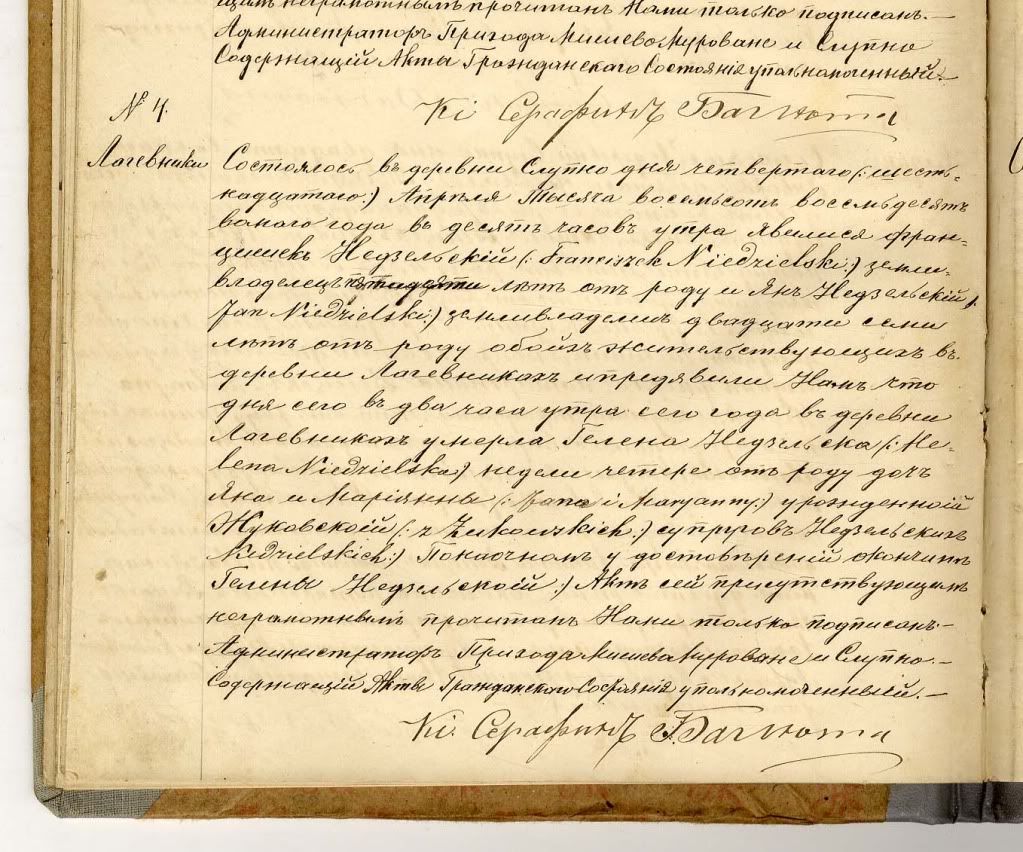 щимъ неграмотнымъ прочитанъ Нами только подписанъ.—
Администраторъ Прихода Мишево Мурованe и Слупно
Содержащій Акты Гражданскаго Состоянія упольномоченный.—
Кі Серафимъ Багнота
№ 4.
Лагевники
Состоялось въ деревни Слупно дня четвертаго (: шесть-
надцатаго:) Апрѣля Тысяча восемьсотъ восемьдесятъ
года въ десять часовъ утра явелися Фран-
цишекъ Недзельскій (: Franciszek Niedzielski:) земли-
владелецъ лѣтъ отъ роду и Янъ Недзельскій (:
Jan Niedzielski:) землевладелецъ двадцати семи
лѣтъ отъ роду обоихъ жительствующихъ въ
деревни Лагевникахъ и предявили Намъ что
дня сего въ два часа утра сего года въ деревни
Лагевникахъ умерла Гелена Недзельска (: He-
lena Niedzielska:) недели четере отъ роду дочь
Яна и Маріянны (: Jana i Maryanny:) урожденной
Жуковской (: z Żukowskich:) супруговъ Недзельскихъ
Niedzielskich:) По у кончины
Гелены Недзельской :) Актъ сей присутствующимъ
неграмотнымъ прочитанъ Нами только подписанъ—
Администраторъ Прихода Мишево Мурованe и Слупно.—
Содержащій Акты Гражданскаго Состоянія упольномоченный.—
Кі. Серафимъ Багнота